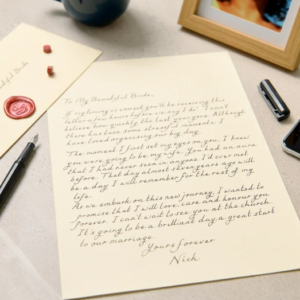 Beautiful Bride
To My Beautiful Bride,
If my timing is correct you'll be receiving this
letter a few hours before we say 'I do'. I can't
believe how quickly the last year gone. Although
there has been some stressful moments, I
have loved organising our big day.
The moment I first set my eyes on you, I knew
you were going to be my wife. You had an aura
that I had never seen in anyone I'd ever met
before. That day almost years ago will
be a day I will remember for the rest of my
life.
As we embark on this new journey, I wanted to
promise that I will love, care and honour you
forever. I can't wait to see you at the church.
It's going to be a brilliant day, a great start
to our marriage.
Yours forever
Nick